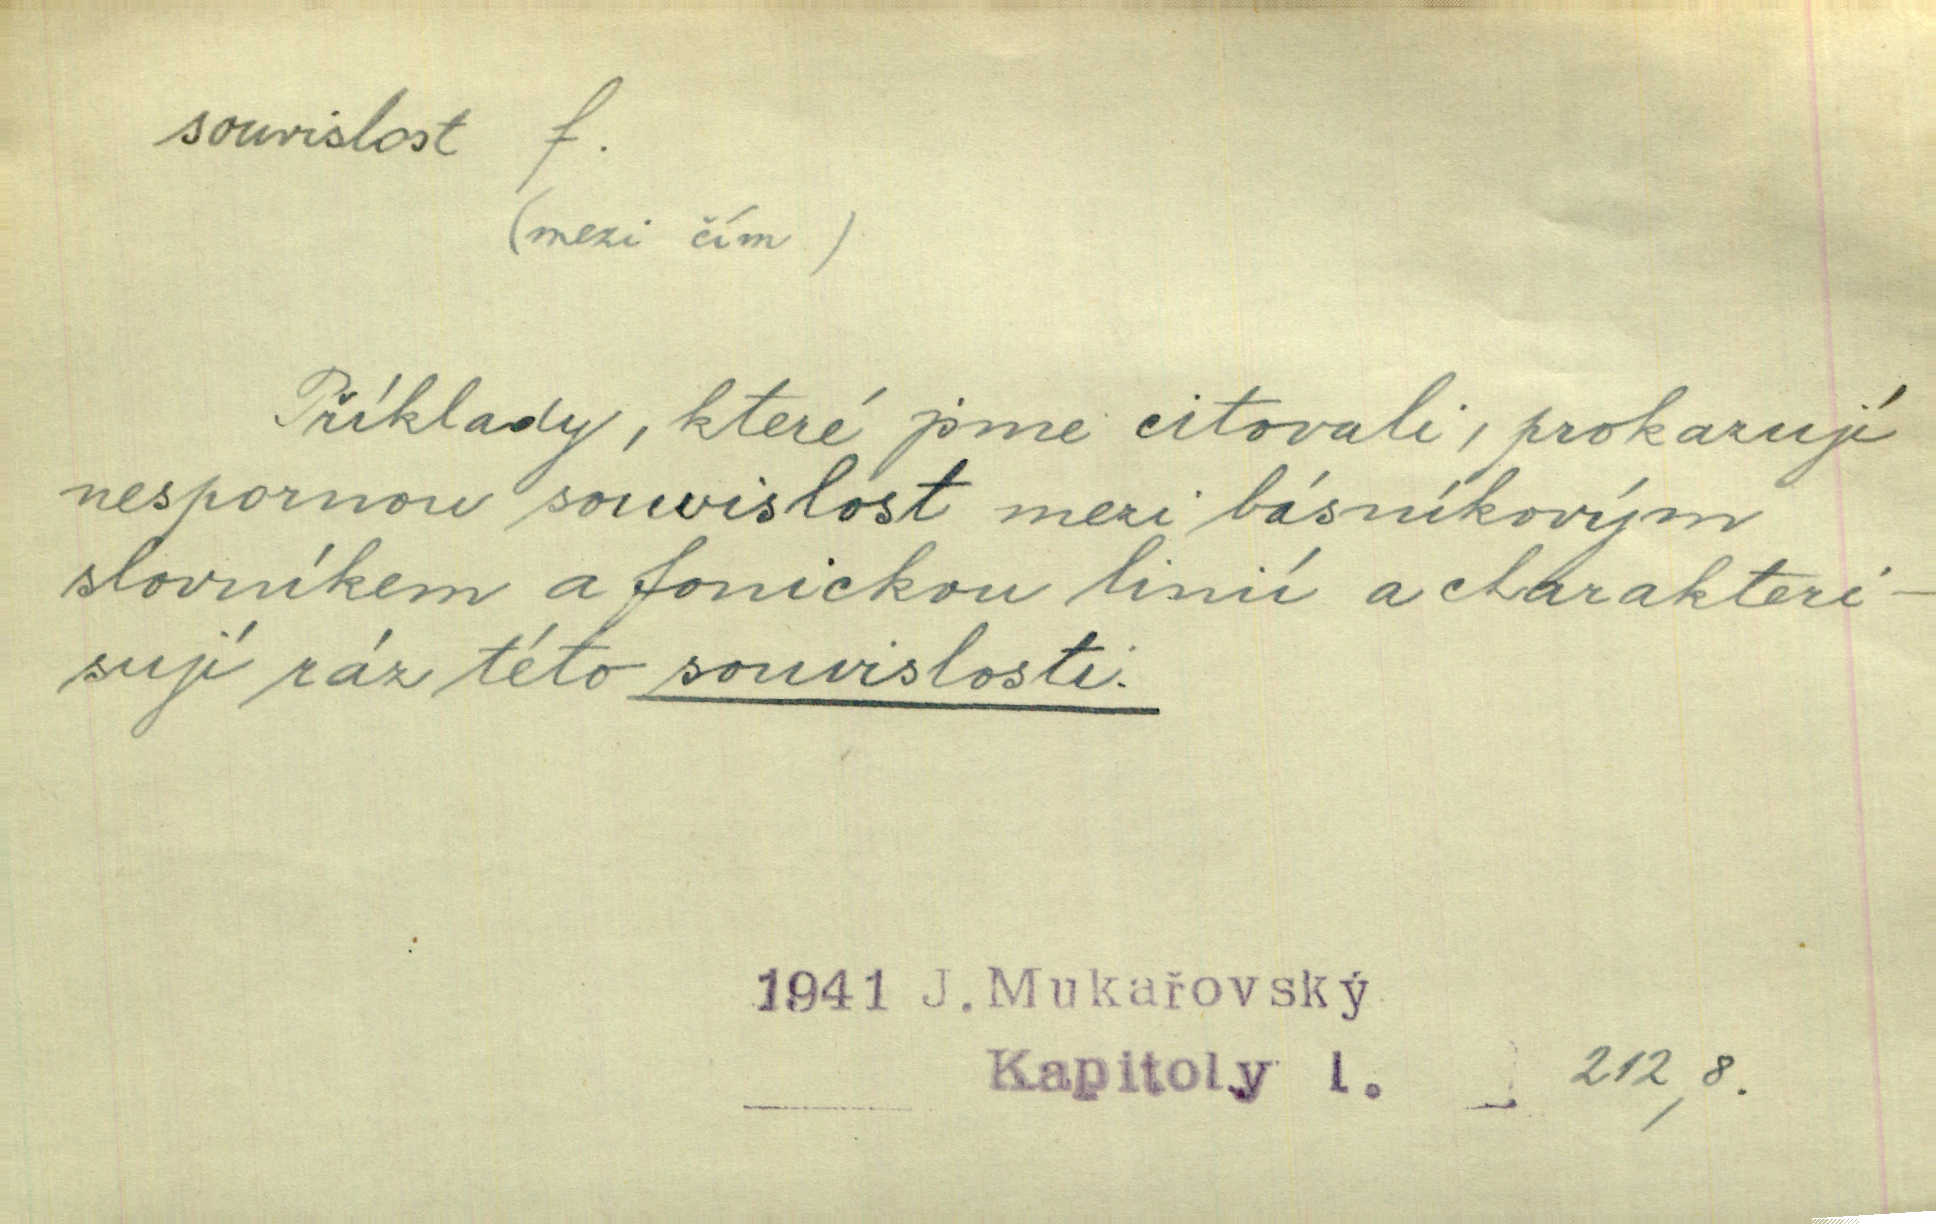 souvislost f.
(mezi čím)
Příklady, které jsme citovali, prokazují
nespornou souvislost mezi básníkovým
slovníkem a fonickou linií a charakteri-
sují ráz této souvislosti.
1941 J. Mukařovský
Kapitoly 1. 212,8.